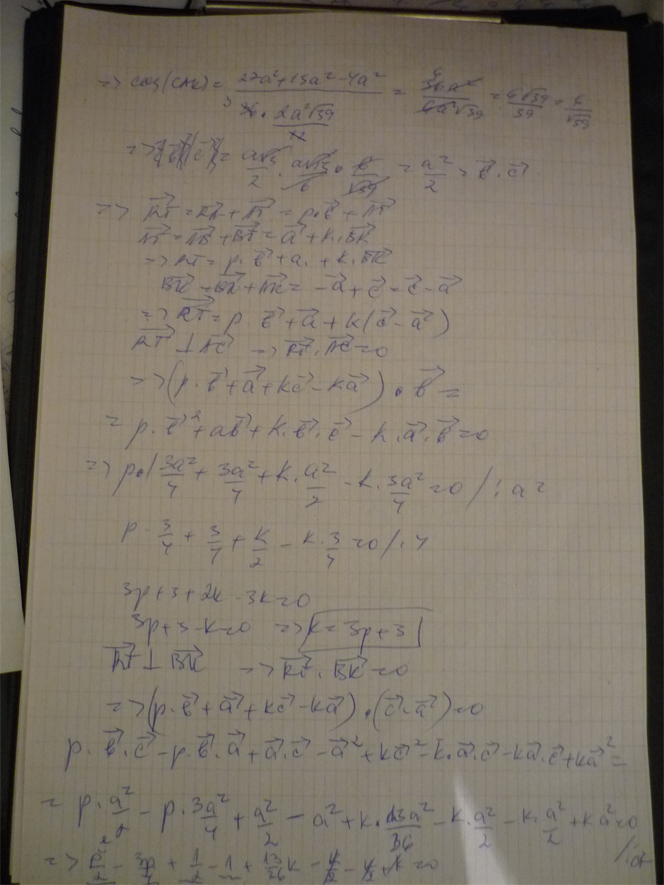 => cos(CAK) = \frac{27a^2+13a^2-4a^2}{36 \cdot \frac{2a^2\sqrt{39}}{12}} = \frac{36a^2}{6a^2\sqrt{39}} = \frac{6\sqrt{39}}{39} = \frac{6}{\sqrt{39}}
=> \vec{b} \cdot \vec{c} = \frac{a\sqrt{3}}{2} \cdot \frac{a\sqrt{13}}{6} \cdot \frac{6}{\sqrt{39}} = \frac{a^2}{2} = \vec{b} \cdot \vec{c}
=> \vec{RT} = \vec{RA} + \vec{AT} = p \cdot \vec{b} + \vec{AT}
\vec{AT} = \vec{AB} + \vec{BT} = \vec{a} + k \cdot \vec{BK}
=> \vec{RT} = p \cdot \vec{b} + a + k \cdot \vec{BK}
\vec{BK} = \vec{BA} + \vec{AK} = -\vec{a} + \vec{c} = \vec{c} - \vec{a}
=> \vec{RT} = p \cdot \vec{b} + \vec{a} + k(\vec{c} - \vec{a})
\vec{RT} ⊥ \vec{AC} => \vec{RT} \cdot \vec{AC} = 0
=> (p \cdot \vec{b} + \vec{a} + k\vec{c} - k\vec{a}) \cdot \vec{b} =
= p \cdot \vec{b}^2 + a\vec{b} + k \cdot \vec{b} \cdot \vec{c} - k \cdot \vec{a} \cdot \vec{b} = 0
=> p \cdot \frac{3a^2}{4} + \frac{3a^2}{4} + k \cdot \frac{a^2}{2} - k \cdot \frac{3a^2}{4} = 0 /: a^2
p \cdot \frac{3}{4} + \frac{3}{4} + \frac{k}{2} - k \cdot \frac{3}{4} = 0 /. 4
3p + 3 + 2k - 3k = 0
3p + 3 - k = 0 => k = 3p + 3
\vec{RT} ⊥ \vec{BK} => \vec{RT} \cdot \vec{BK} = 0
=> (p \cdot \vec{b} + \vec{a} + k\vec{c} - k\vec{a}) \cdot (\vec{c} - \vec{a}) = 0
p \cdot \vec{b} \cdot \vec{c} - p \cdot \vec{b} \cdot \vec{a} + \vec{a} \cdot \vec{c} - \vec{a}^2 + k\vec{c}^2 - k \cdot \vec{a} \cdot \vec{c} - k\vec{a} \cdot \vec{c} + k\vec{a}^2 =
= p \cdot \frac{a^2}{2} - p \cdot \frac{3a^2}{4} + \frac{a^2}{2} - a^2 + k \cdot \frac{13a^2}{36} - k \cdot \frac{a^2}{2} - k \cdot \frac{a^2}{2} + k a^2 = 0
=> \frac{p}{2} - \frac{3p}{4} + \frac{1}{2} - 1 + \frac{13}{36}k - \frac{k}{2} - \frac{k}{2} + k = 0